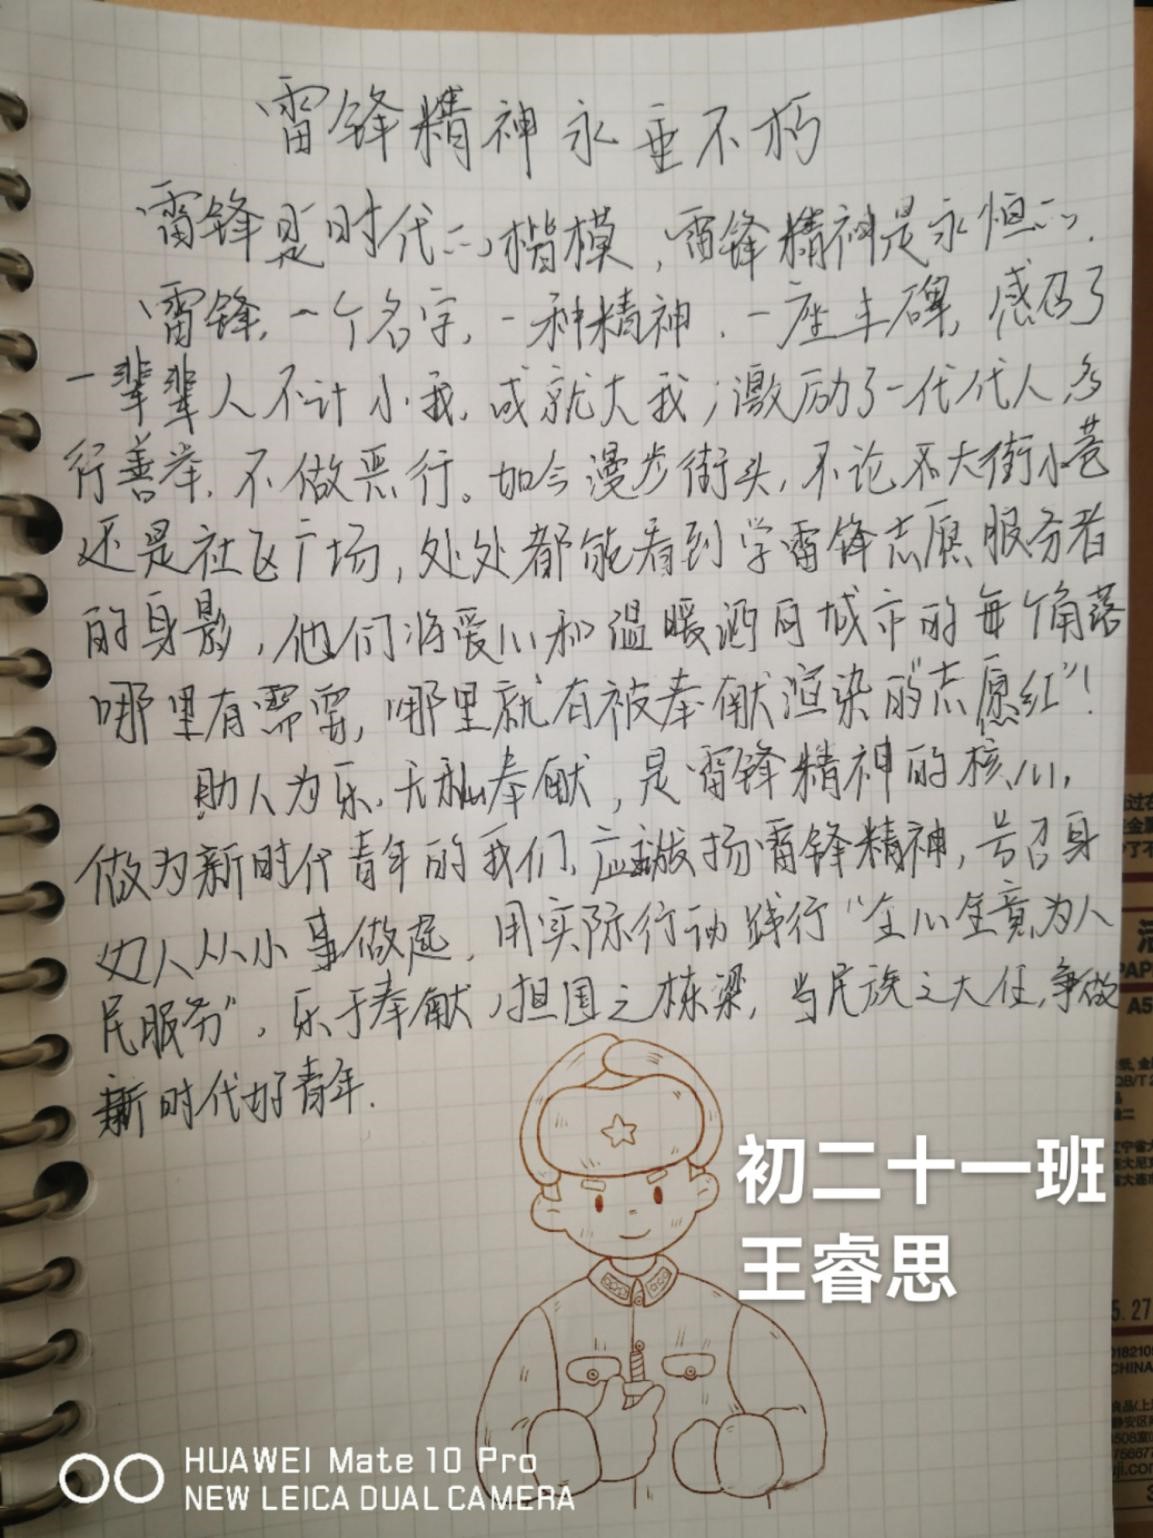 雷锋精神永垂不朽
雷锋是时代的楷模，雷锋精神是永恒的.
雷锋，一个名字，一种精神，一座丰碑，感召了
一辈辈人不计小我，成就大我；激励了一代代人，多
行善举，不做恶行。如今漫步街头，不论不大街小巷
还是社区广场，处处都能看到学雷锋志愿服务者
的身影，他们将爱心和温暖洒向城市的每个角落
哪里有需要，哪里就有被奉献渲染的“志愿红”！
助人为乐，无私奉献，是雷锋精神的核心，
做为新时代青年的我们，应发扬雷锋精神，号召身
边人从小事做起，用实际行动践行“全心全意为人
民服务”，乐于奉献，担国之栋梁，当民族之大任，争做
新时代好青年.
初二十一班
王睿思
HUAWEI Mate 10 Pro
NEW LEICA DUAL CAMERA
PAP
A5
5.27
CHINA